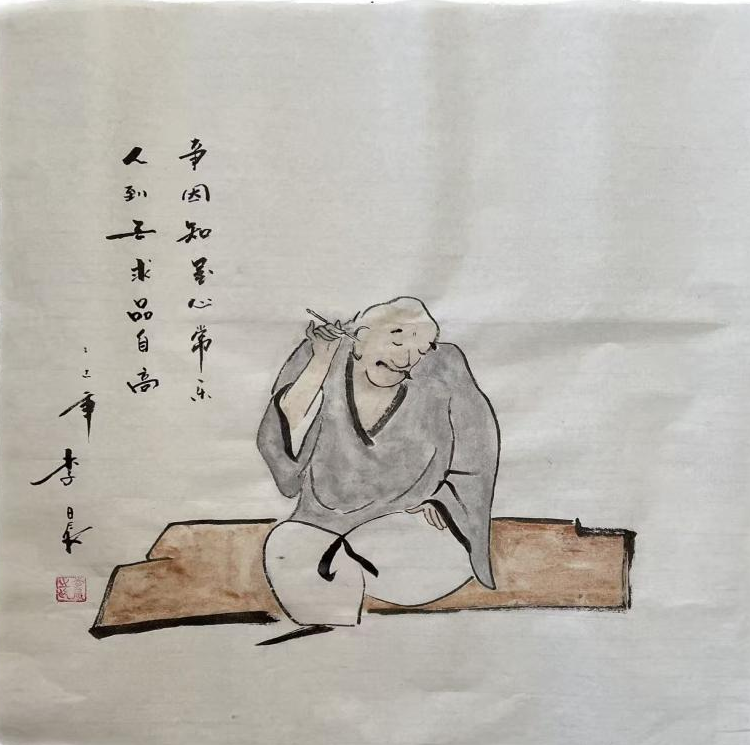 事因知足心常乐
人到无求品自高
乙巳年
李